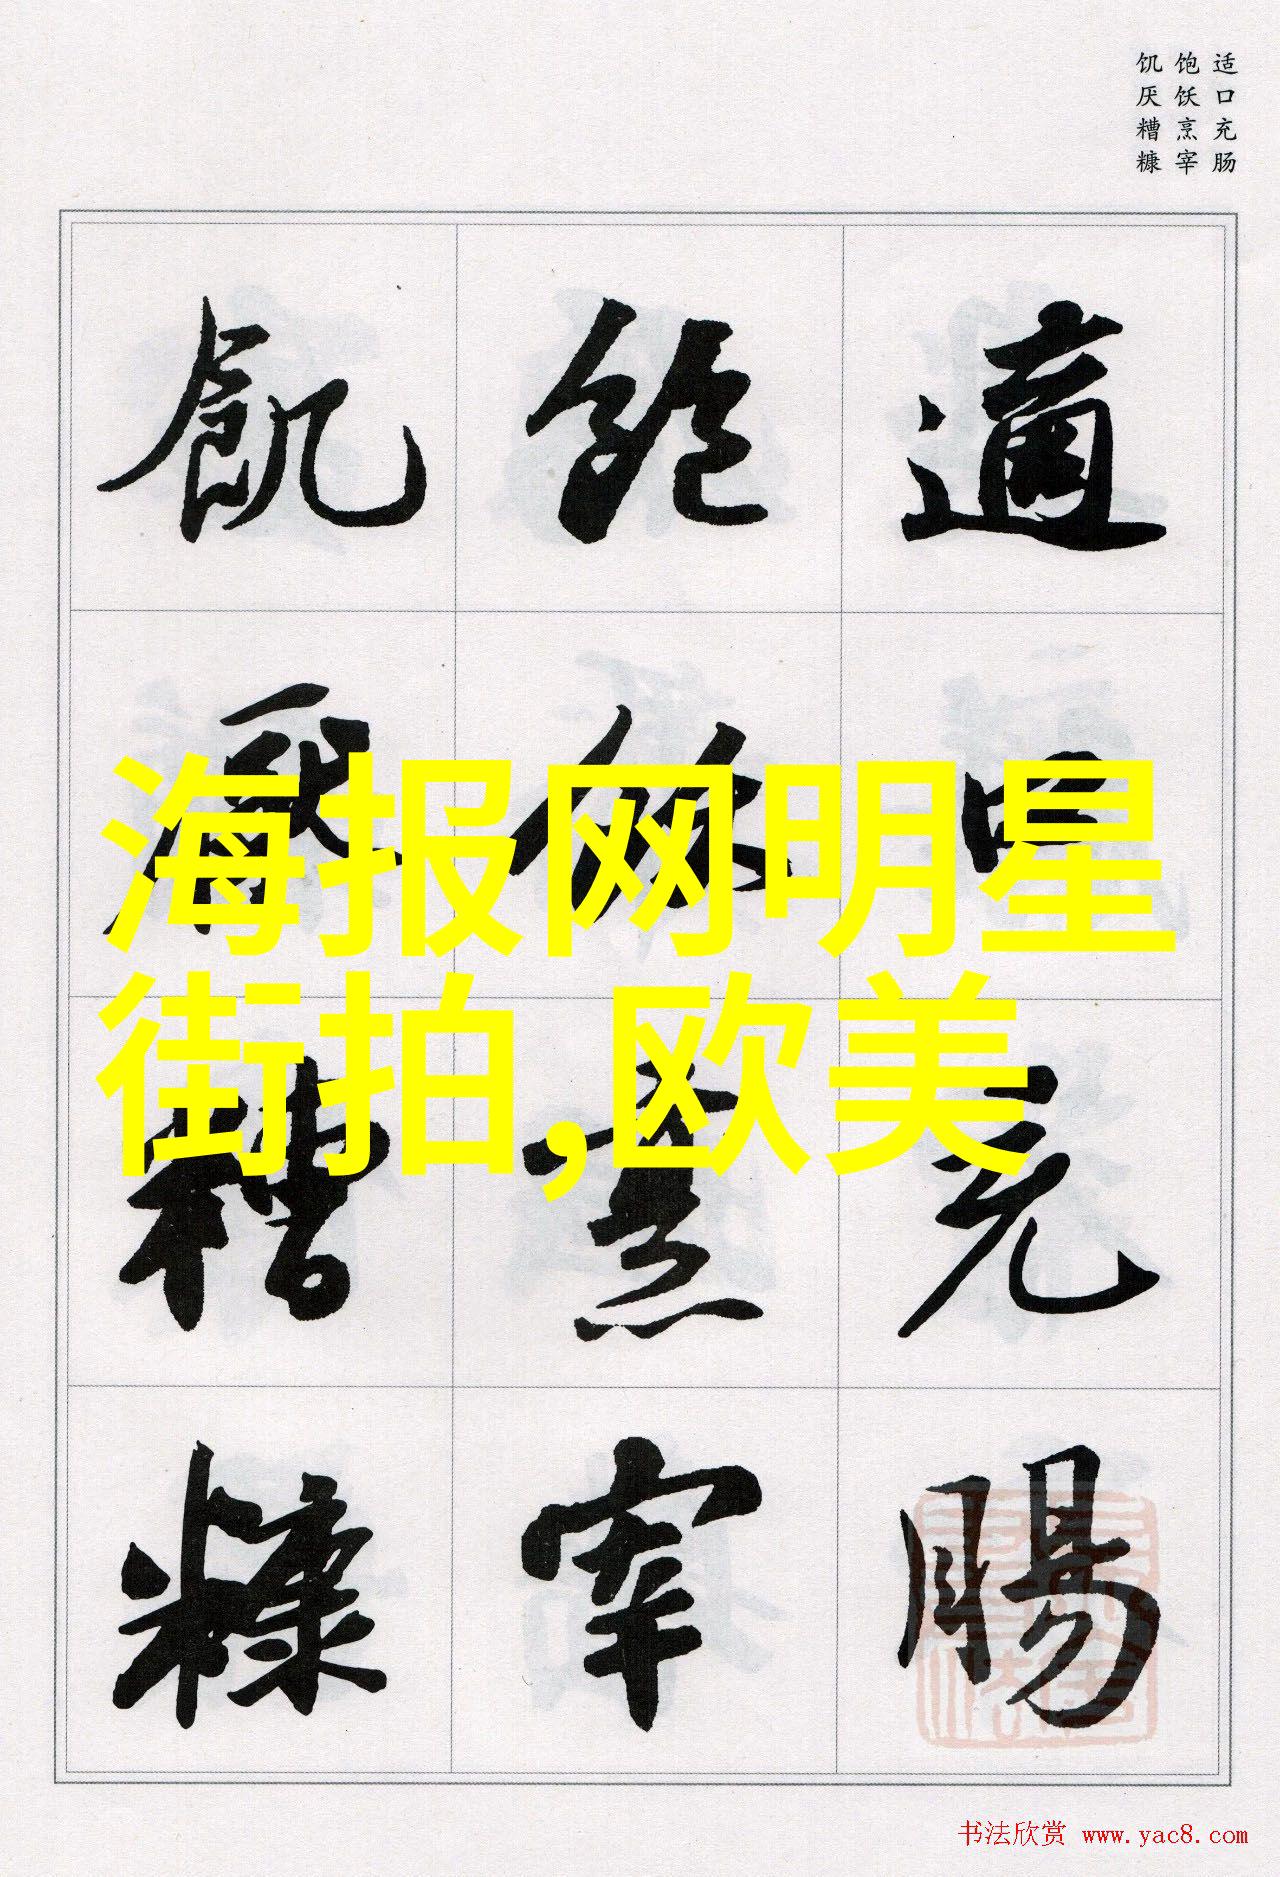 适口充肠
饱饫烹宰
饥厌糟糠
適口充腸
飽飫烹宰
飢厭糟糠
海报网明星
街拍,欧美
书法欣赏 www.yac8.com